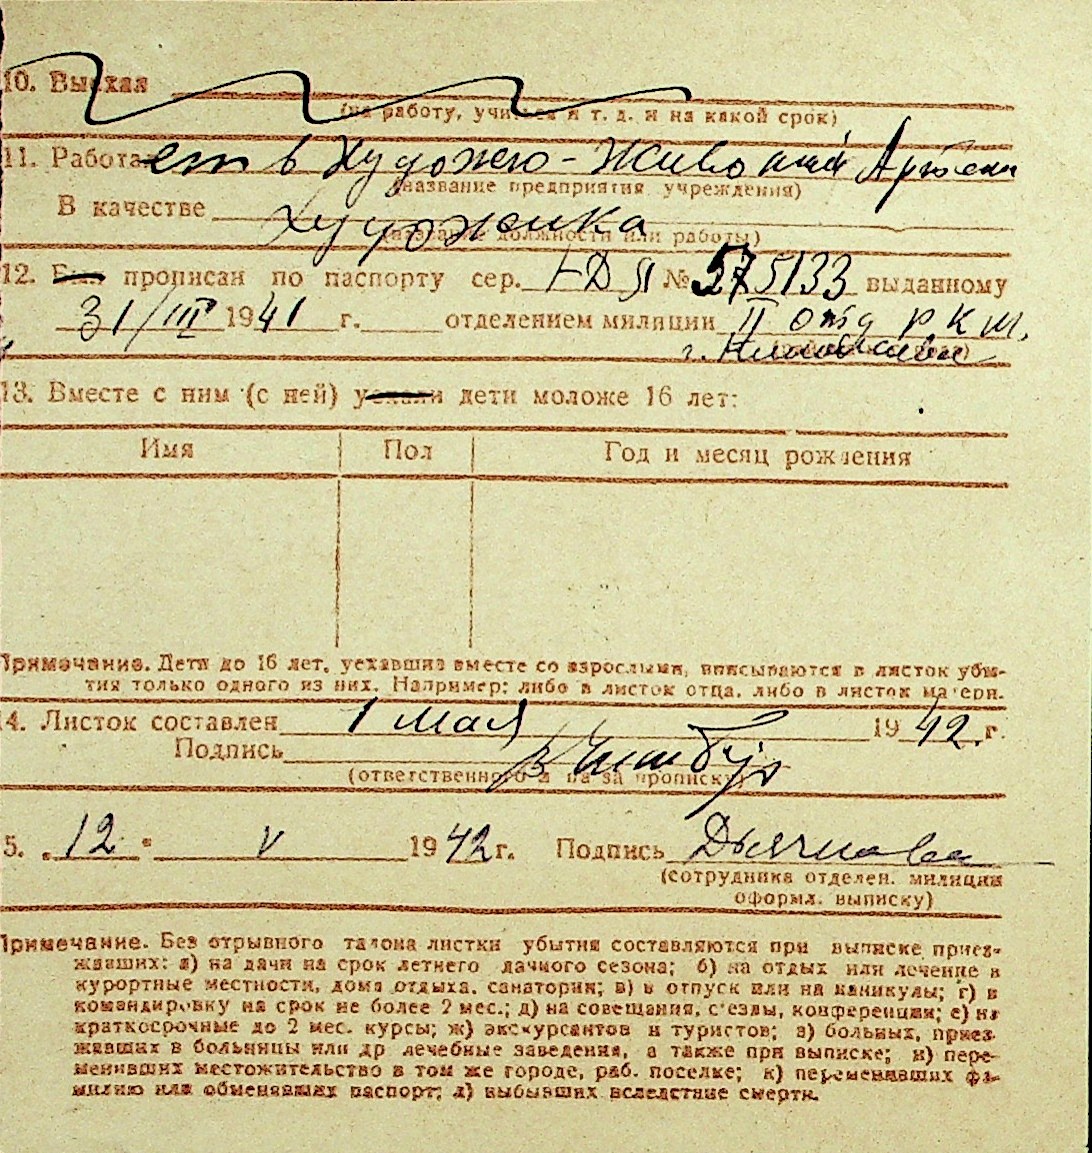 10. Выехал
(на работу, учиться и т. д. и на какой срок)
11. Работает в Художею-Живопный Артели
(название предприятия учреждения)
В качестве Художника
(название должности или работы)
12. Был прописан по паспорту сер. I-ДЯ № 575133 выданному
31/III 1941 г. отделением милиции II отд РКМ.
г.
13. Вместе с ним (с ней) уехали дети моложе 16 лет:
Имя Пол Год и месяц рождения
Примечание. Дети до 16 лет, уехавшие вместе со взрослыми, вписываются в листок убы-
тия только одного из них. Например: либо в листок отца, либо в листок матери.
14. Листок составлен 1 мая 1942 г.
Подпись
(ответственного лица за прописку)
5. „12" V 1942 г. Подпись
(сотрудника отделен. милиции
оформл. выписку)
Примечание. Без отрывного талона листки убытия составляются при выписке приез-
жавших: а) на дачи на срок летнего дачного сезона; б) на отдых или лечение в
курортные местности, дома отдыха, санатории; в) в отпуск или на каникулы; г) в
командировку на срок не более 2 мес.; д) на совещания, с'езды, конференции; е) на
краткосрочные до 2 мес. курсы; ж) экскурсантов и туристов; з) больных, приез-
жавших в больницы или др лечебные заведения, а также при выписке; и) пере-
менивших местожительство в том же городе, раб. поселке; к) переменивших фа-
милию или обменявших паспорт; л) выбывших вследствие смерти.